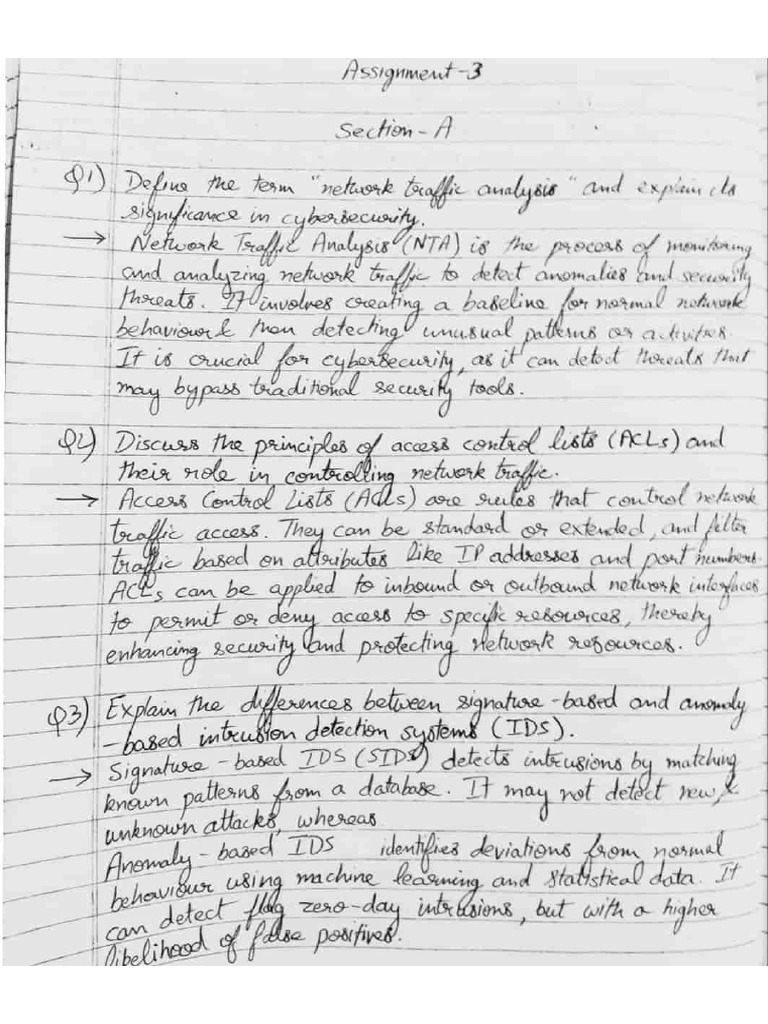 Assignment-3
Section-A
Q1) Define the term "network traffic analysis" and explain its
significance in cybersecurity.
→ Network Traffic Analysis (NTA) is the process of monitoring
and analyzing network traffic to detect anomalies and security
threats. It involves creating a baseline for normal network
behaviour & then detecting unusual patterns or activities.
It is crucial for cybersecurity, as it can detect threats that
may bypass traditional security tools.
Q2) Discuss the principles of access control lists (ACLs) and
their role in controlling network traffic.
→ Access Control Lists (ACLs) are rules that control network
traffic access. They can be standard or extended, and filter
traffic based on attributes like IP addresses and port numbers.
ACLs can be applied to inbound or outbound network interfaces
to permit or deny access to specific resources, thereby
enhancing security and protecting network resources.
Q3) Explain the differences between signature-based and anomaly
-based intrusion detection systems (IDS).
→ Signature-based IDS (SIDS) detects intrusions by matching
known patterns from a database. It may not detect new &
unknown attacks, whereas
Anomaly-based IDS identifies deviations from normal
behaviour using machine learning and statistical data. It
can detect flag zero-day intrusions, but with a higher
likelihood of false positives.